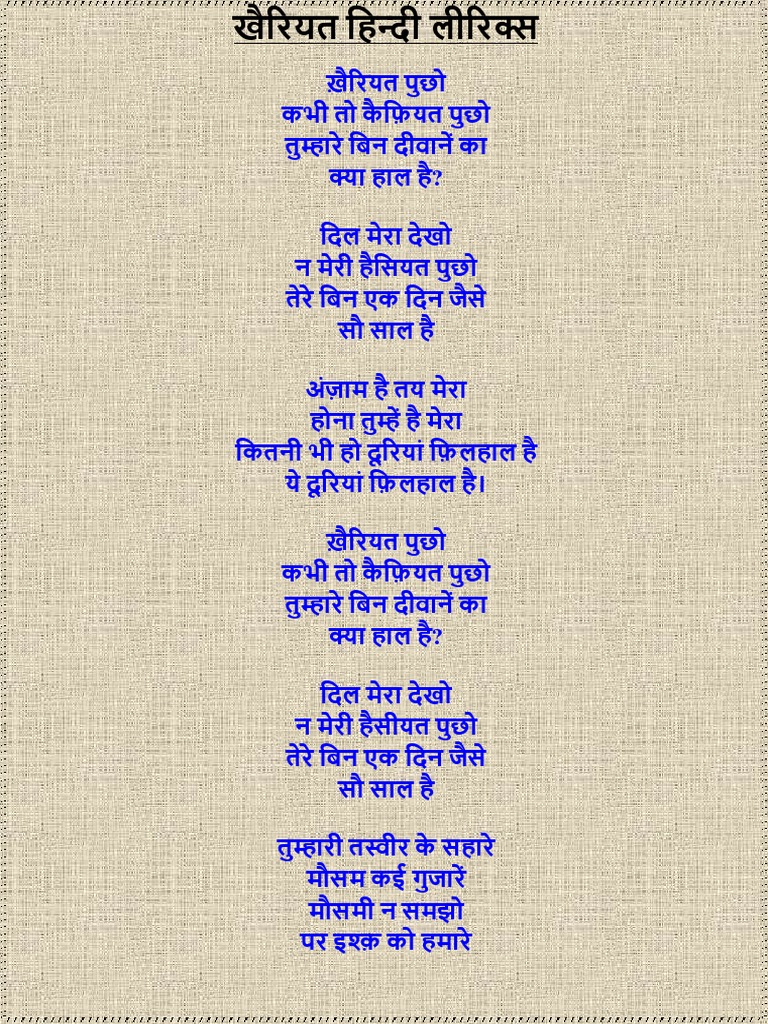 खैरियत हिन्दी लीरिक्स
ख़ैरियत पुछो
कभी तो कैफ़ियत पुछो
तुम्हारे बिन दीवानें का
क्या हाल है?
दिल मेरा देखो
न मेरी हैसियत पुछो
तेरे बिन एक दिन जैसे
सौ साल है
अंज़ाम है तय मेरा
होना तुम्हें है मेरा
कितनी भी हो दूरियां फ़िलहाल है
ये दूरियां फ़िलहाल है।
ख़ैरियत पुछो
कभी तो कैफ़ियत पुछो
तुम्हारे बिन दीवानें का
क्या हाल है?
दिल मेरा देखो
न मेरी हैसीयत पुछो
तेरे बिन एक दिन जैसे
सौ साल है
तुम्हारी तस्वीर के सहारे
मौसम कई गुजारें
मौसमी न समझो
पर इश्क़ को हमारे